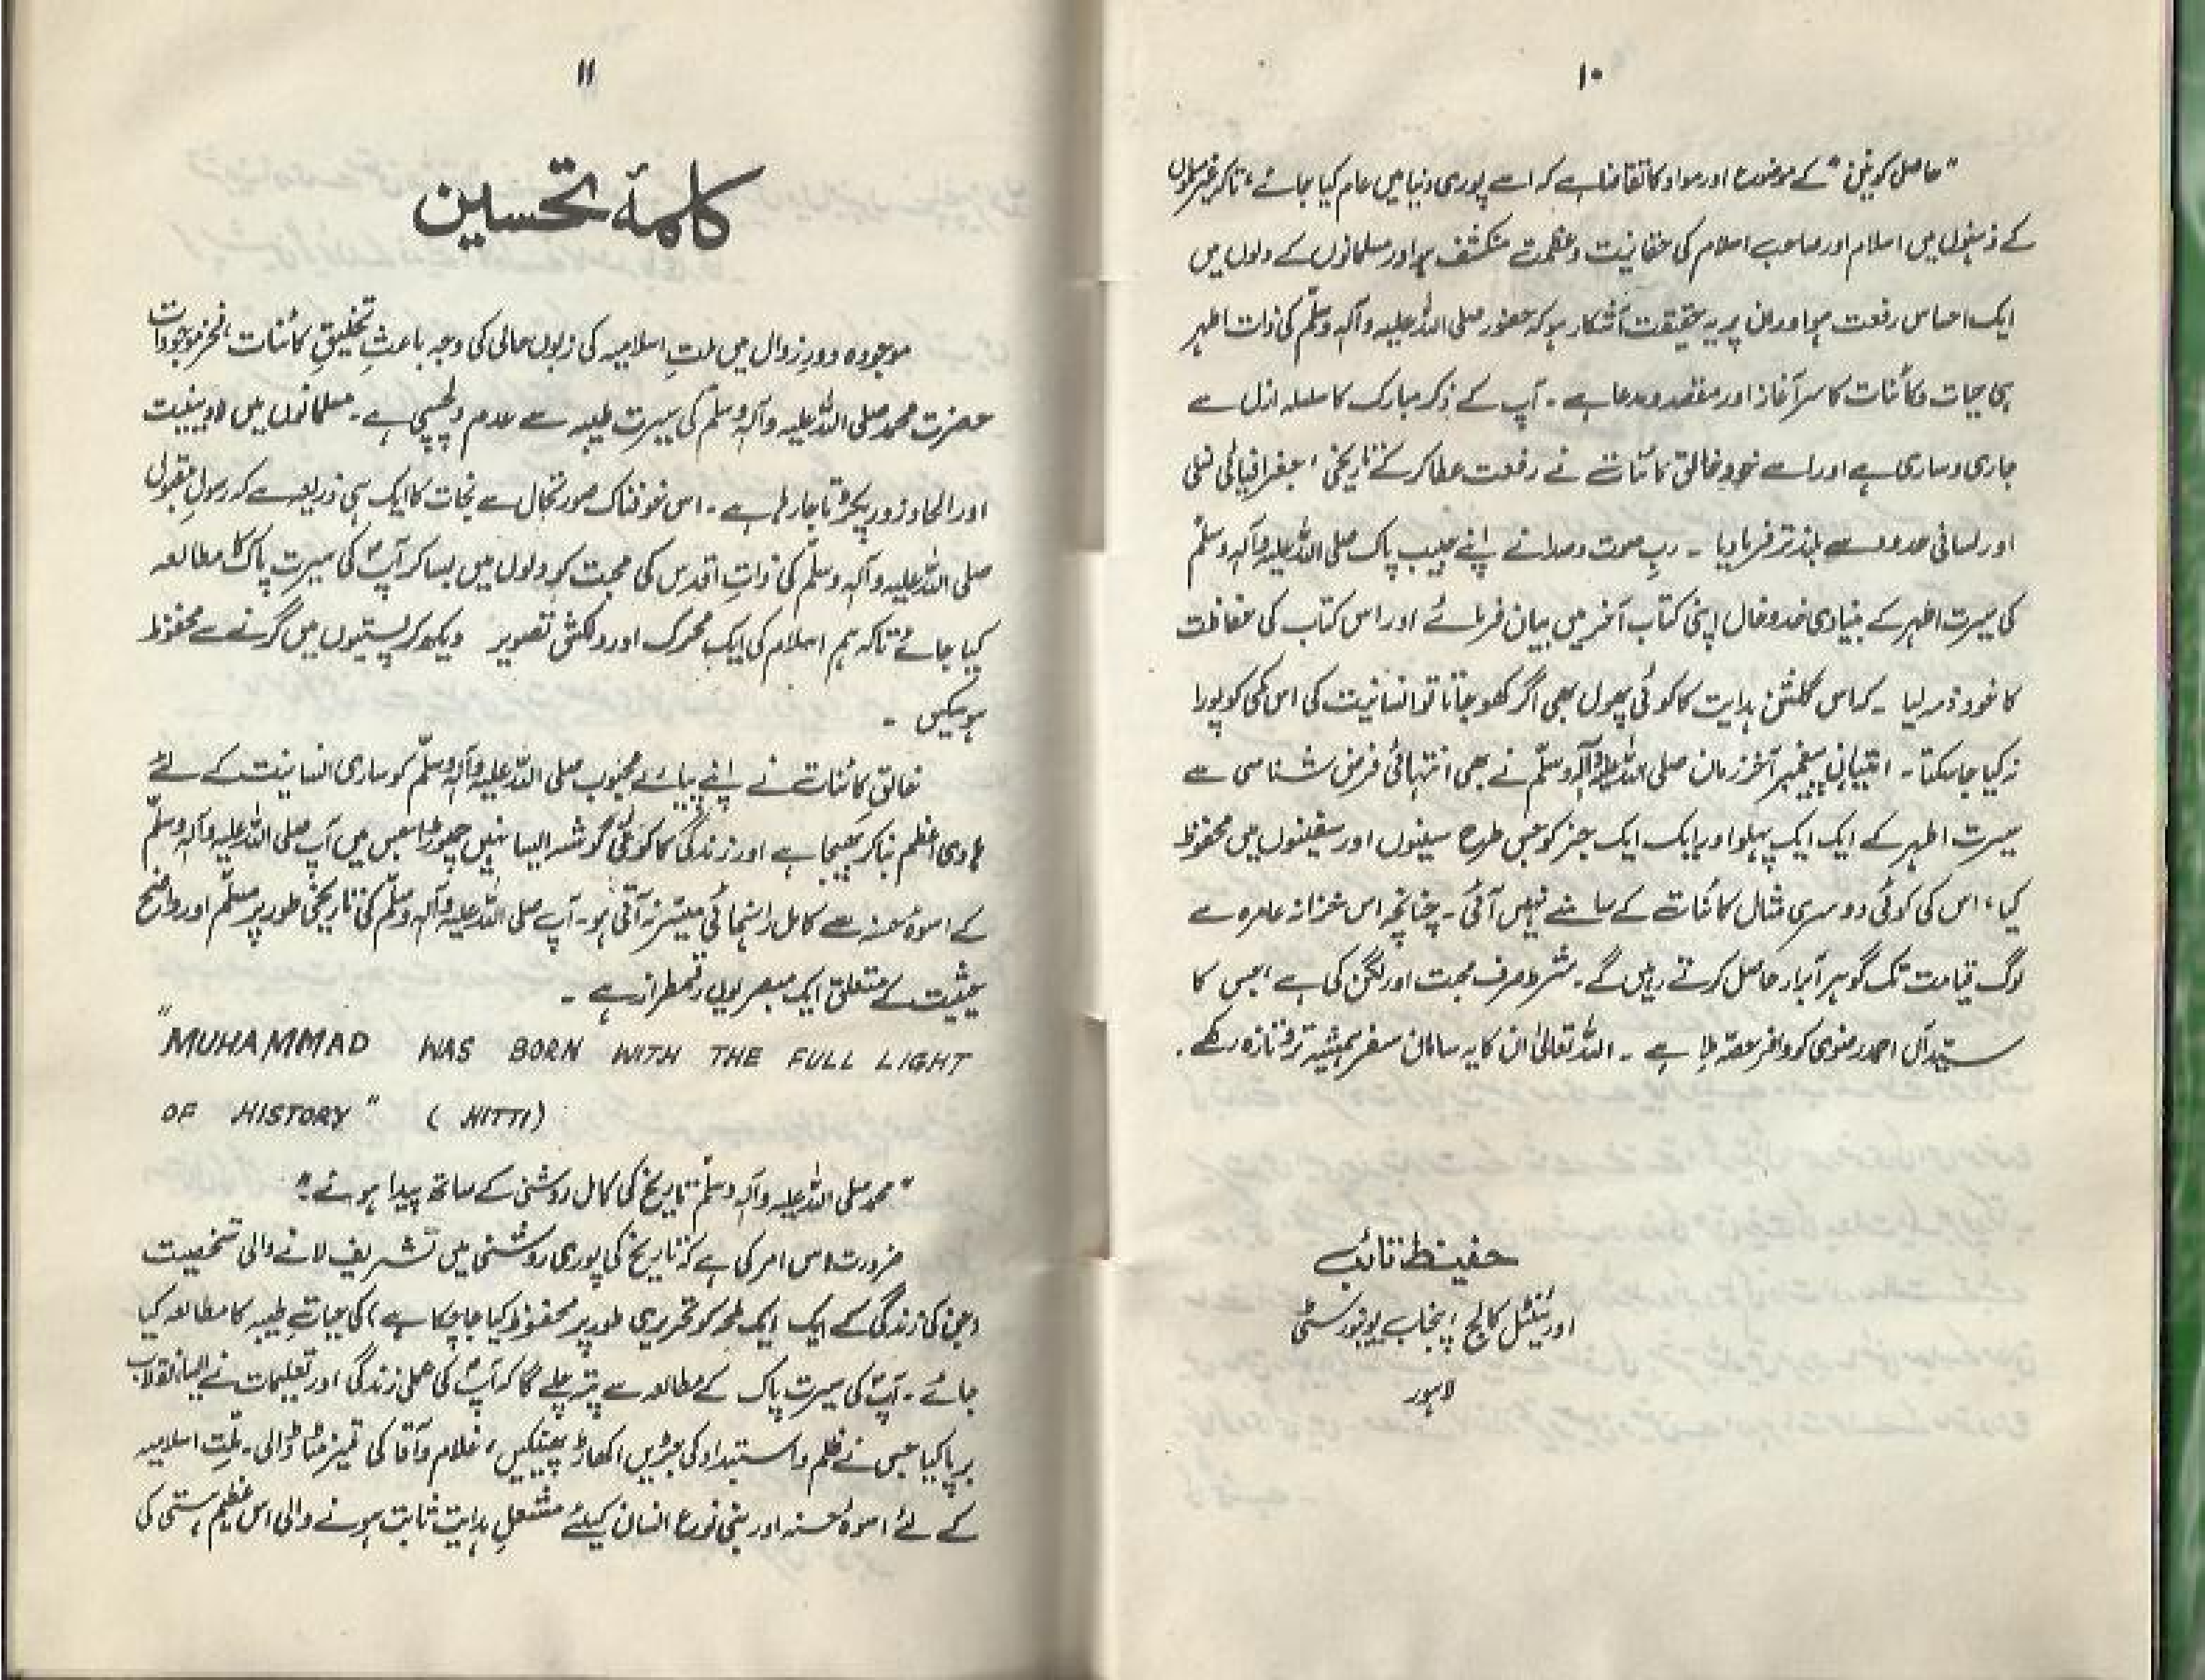 ۱۰
"حاصلِ کونین" کے موضوع اور مواد کا تقاضا ہے کہ اسے پوری دنیا میں عام کیا جائے، تاکہ غیرمسلموں
کے ذہنوں میں اسلام اور صاحبِ اسلام کی حقانیت و عظمت منکشف ہو اور مسلمانوں کے دلوں میں
ایک احساسِ رفعت ہو اور ان پر یہ حقیقت آشکار ہو کہ حضور صلی اللہ علیہ وآلہ وسلّم کی ذات اطہر
ہی حیات و کائنات کا سر آغاز اور مقصد و مدعا ہے ۔ آپ کے ذکر مبارک کا سلسلہ ازل سے
جاری و ساری ہے اور اسے خود خالقِ کائنات نے رفعت عطا کر کے تاریخی، جغرافیائی نسلی
اور لسانی حدود سے بلند تر فرما دیا ۔ ربِ صوت و صدا نے اپنے حبیب پاک صلی اللہ علیہ وآلہ وسلّم
کی سیرت اطہر کے بنیادی خدوخال اپنی کتاب آخر میں بیان فرمائے اور اس کتاب کی حفاظت
کا خود ذمہ لیا ۔ کہ اس گلشنِ ہدایت کا کوئی پھول بھی اگر کھو جاتا تو انسانیت کی اس کمی کو پورا
نہ کیا جا سکتا ۔ پیغمبرِ آخر زمان صلی اللہ علیہ وآلہ وسلّم نے بھی انتہائی فرض شناسی سے
سیرت اطہر کے ایک ایک پہلو اور ایک ایک جز کو جس طرح سینوں اور سفینوں میں محفوظ
کیا، اس کی کوئی دوسری مثال کائنات کے سامنے نہیں آئی ۔ چنانچہ اس خزانہ عامرہ سے
لوگ قیامت تک گوہر آبدار حاصل کرتے رہیں گے ۔ شرط صرف محبت اور لگن کی ہے، جس کا
سیّد آل احمد رضوی کو وافر حصّہ ملا ہے ۔ اللہ تعالیٰ ان کا یہ سامان سفر ہمیشہ تر و تازہ رکھے ۔
حفیظ تائب
اورینٹل کالج، پنجاب یونیورسٹی
لاہور
۱۱
کلمۂ تحسین
موجودہ دورِ زوال میں ملتِ اسلامیہ کی زبوں حالی کی وجہ باعثِ تخلیقِ کائنات، فخر موجودات
حضرت محمد صلی اللہ علیہ وآلہ وسلّم کی سیرت طیبہ سے عدم دلچسپی ہے ۔ مسلمانوں میں لادینیت
اور الحاد زور پکڑتا جا رہا ہے ۔ اس خوفناک صورتحال سے نجات کا ایک ہی ذریعہ ہے کہ رسولِ مقبول
صلی اللہ علیہ وآلہ وسلّم کی ذاتِ اقدس کی محبت کو دلوں میں بسا کر آپؐ کی سیرت پاک کا مطالعہ
کیا جائے تاکہ ہم اسلام کی ایک محرک اور دلکش تصویر دیکھ کر پستیوں میں گرنے سے محفوظ
ہو سکیں ۔
خالقِ کائنات نے اپنے پیارے محبوب صلی اللہ علیہ وآلہ وسلّم کو ساری انسانیت کے لئے
ہادی اعظم بنا کر بھیجا ہے اور زندگی کا کوئی گوشہ ایسا نہیں چھوڑا جس میں آپ صلی اللہ علیہ وآلہ وسلّم
کے اسوۂ حسنہ سے کامل راہنمائی میسّر نہ آتی ہو ۔ آپ صلی اللہ علیہ وآلہ وسلّم کی تاریخی طور پر مسلّم اور واضح
حیثیت کے متعلق ایک مبصر یوں رقمطراز ہے ۔
"MUHAMMAD WAS BORN WITH THE FULL LIGHT
OF HISTORY" (HITTI)
"محمد صلی اللہ علیہ وآلہ وسلّم تاریخ کی کامل روشنی کے ساتھ پیدا ہوئے"
ضرورت اس امر کی ہے کہ تاریخ کی پوری روشنی میں تشریف لانے والی شخصیت
(جن کی زندگی کے ایک ایک لمحہ کو تحریری طور پر محفوظ کیا جا چکا ہے) کی حیاتِ طیبہ کا مطالعہ کیا
جائے ۔ آپؐ کی سیرت پاک کے مطالعہ سے پتہ چلے گا کہ آپؐ کی عملی زندگی اور تعلیمات نے ایسا انقلاب
برپا کیا جس نے ظلم و استبداد کی جڑیں اکھاڑ پھینکیں، غلام و آقا کی تمیز مٹا ڈالی ۔ ملّتِ اسلامیہ
کے لئے اسوۂ حسنہ اور بنی نوع انسان کیلئے مشعلِ ہدایت ثابت ہونے والی اس عظیم ہستی کی